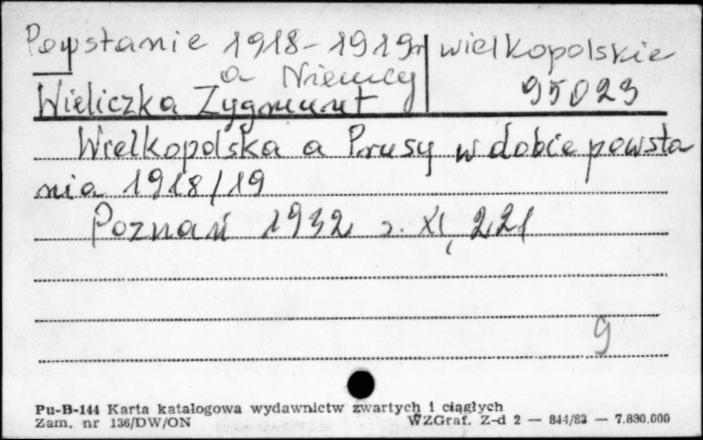 Powstanie 1918-1919r wielkopolskie
a Niemcy
Wieliczka Zygmunt 95023
Wielkopolska a Prusy w dobie powsta
nia 1918/19
Poznań 1932 s. XI, 221
g
Pu-B-144 Karta katalogowa wydawnictw zwartych i ciągłych
Zam. nr 136/DW/ON WZGraf. Z-d 2 — 844/83 — 7.830.000